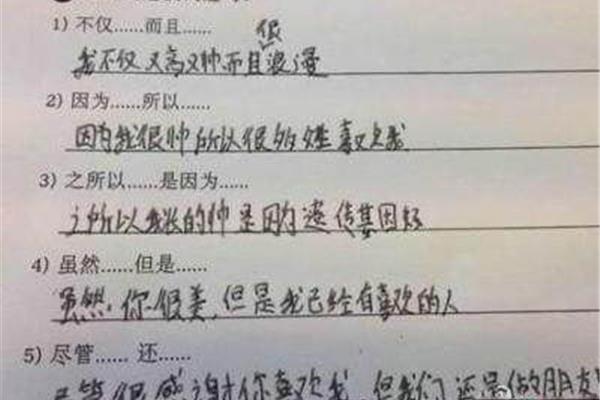 1) 不仅……而且……
我不仅又高又帅而且很浪漫
2) 因为……所以……
因为我很帅所以很多女生喜欢我
3) 之所以……是因为……
之所以我长的帅是因为遗传基因好
4) 虽然……但是……
虽然你很美,但是我已经有喜欢的人
5) 尽管…… 还……
尽管很感谢你喜欢我,但我们还是做朋友